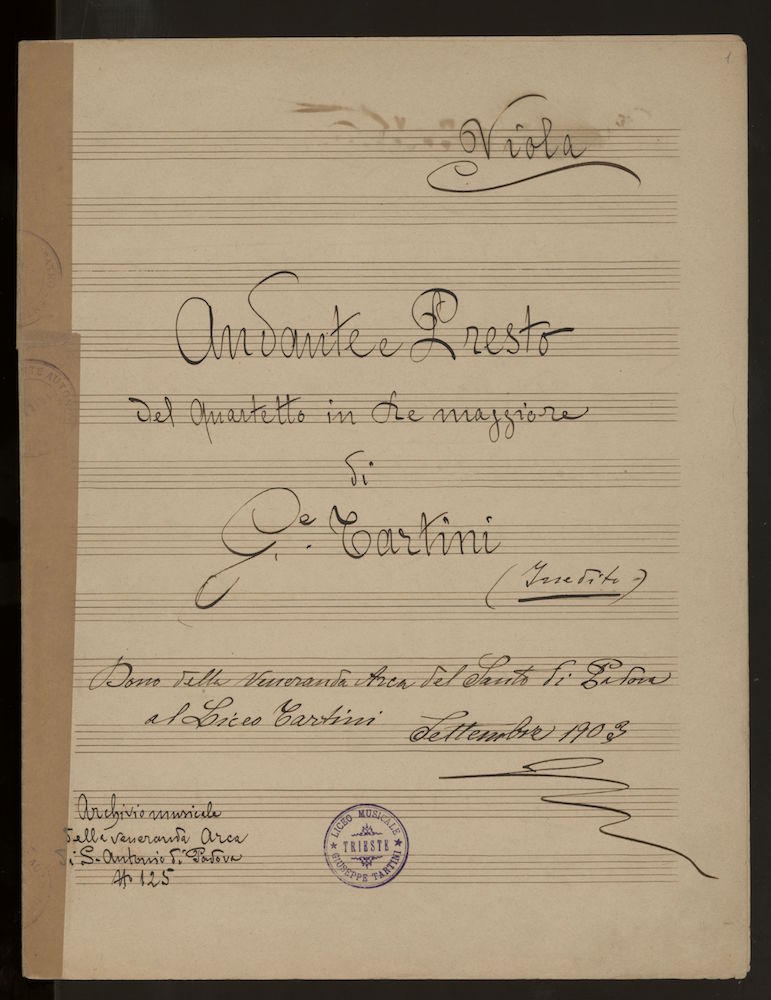 1
Viola
Andante e Presto
del Quartetto in Re maggiore
di
G.e Tartini
(Inedito)
Dono della Veneranda Arca del Santo di Padova
al Liceo Tartini
Settembre 1903
Archivio musicale
della veneranda Arca
di S. Antonio di Padova
N° 125
LICEO MUSICALE
TRIESTE
GIUSEPPE TARTINI